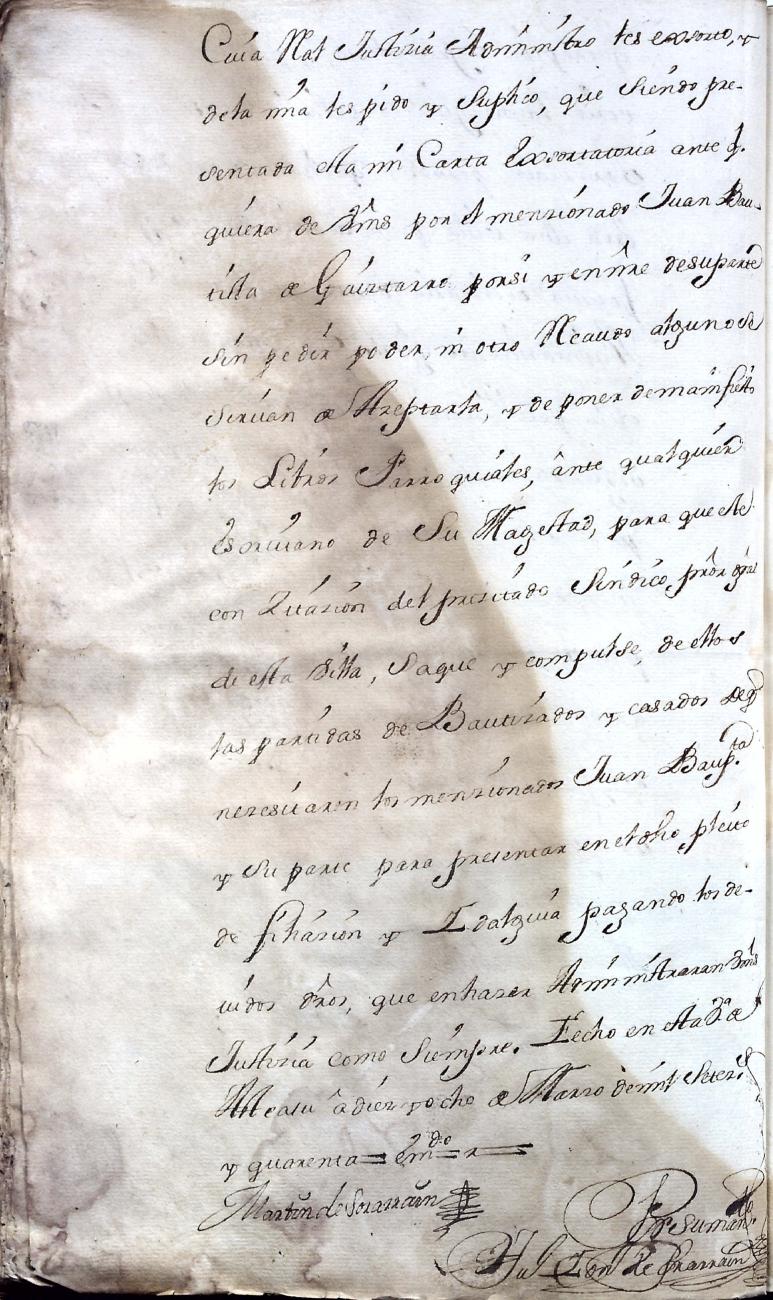 Cuia Rl Justizia Administro les exsorto, y
de la mia les pido y Suplico, que siendo pre-
sentada esta mi Carta Exsortatoria ante q.
quiera de Vms por el menzionado Juan Bau-
tista de Gaiztarro por si y en nre de su parte
sin pedir poder, ni otro Recaudo alguno se
siruan de Azeptarla, y de poner de manifiesto
los Libros Parroquiales, ante qualquier
Escriuano de Su Magestad, para que este
con Zitazion del prezitado Sindico, pror gral
de esta Villa, Saque y compulse, de ellos
las partidas de Bautizados y casados q
nezesitaren los menzionados Juan Baup.ta
y su parte para presentar en el dho pleito
de filiazion y Idalguia pagando los de-
uidos dros, que en hazer Administraran Vms
Justizia como siempre. Fecho en esta Va de
a diez y ocho de Marzo de mil Setezs
y quarenta = em.do = r =
Martin de Sorarrain
Por su man.do